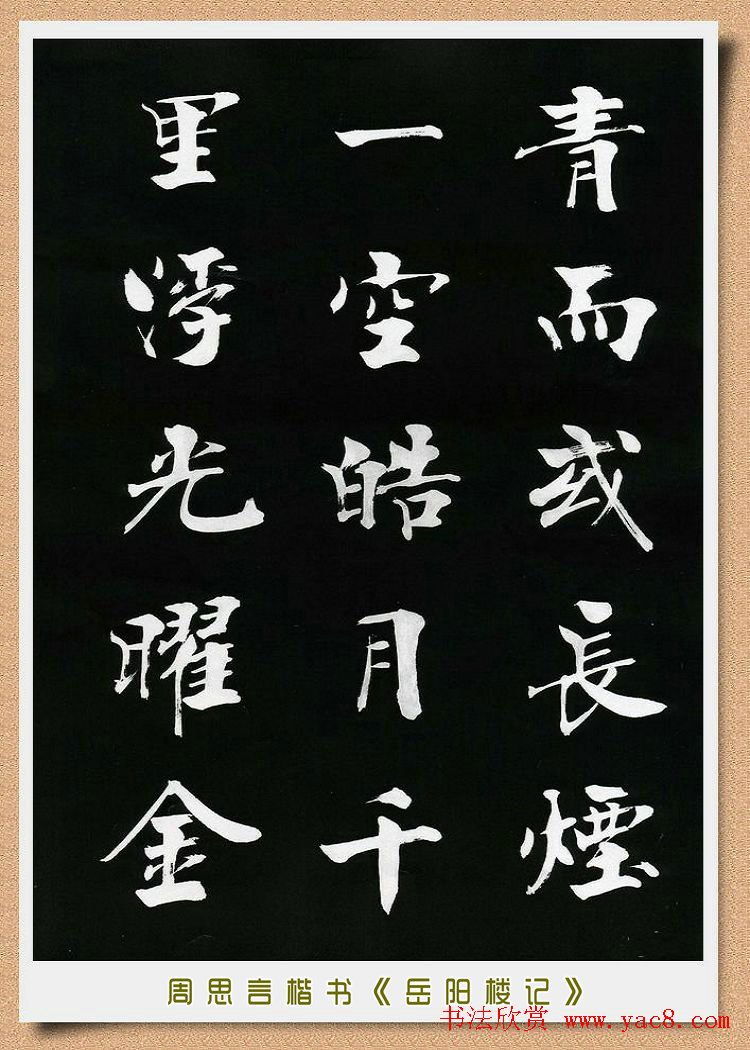 青而或長煙
一空皓月千
里浮光曜金
周思言楷书《岳阳楼记》
书法欣赏 www.yac8.com